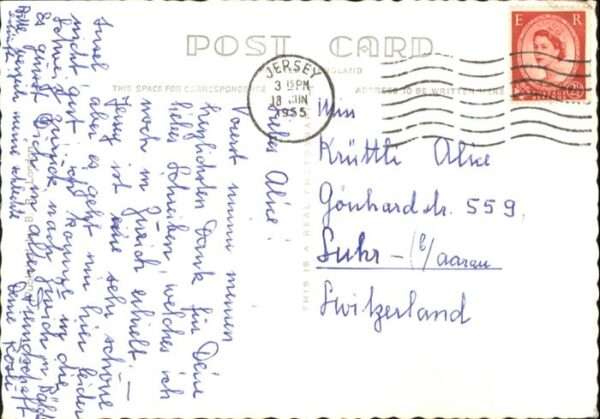 POST CARD
THIS SPACE FOR CORRESPONDENCE ADDRESS TO BE WRITTEN HERE
JERSEY
3 15 PM
18 JUN
1955
E R
Miss
Krüttli Alice
Gönhardstr. 559
Suhr - (b/Aarau
Switzerland
THIS IS A REAL
Liebes Alice!
Vorerst nimm meinen
herzlichsten Dank für Deine
liebes Schreiben, welches ich
noch in Zürich erhielt. —
Jersey ist eine sehr schöne
Insel, aber es geht mir hier leider
nicht gut, ich komme in die
Schweiz zurück nach Zürich.
Es grüsst Dich in alter Freundschaft
Deine